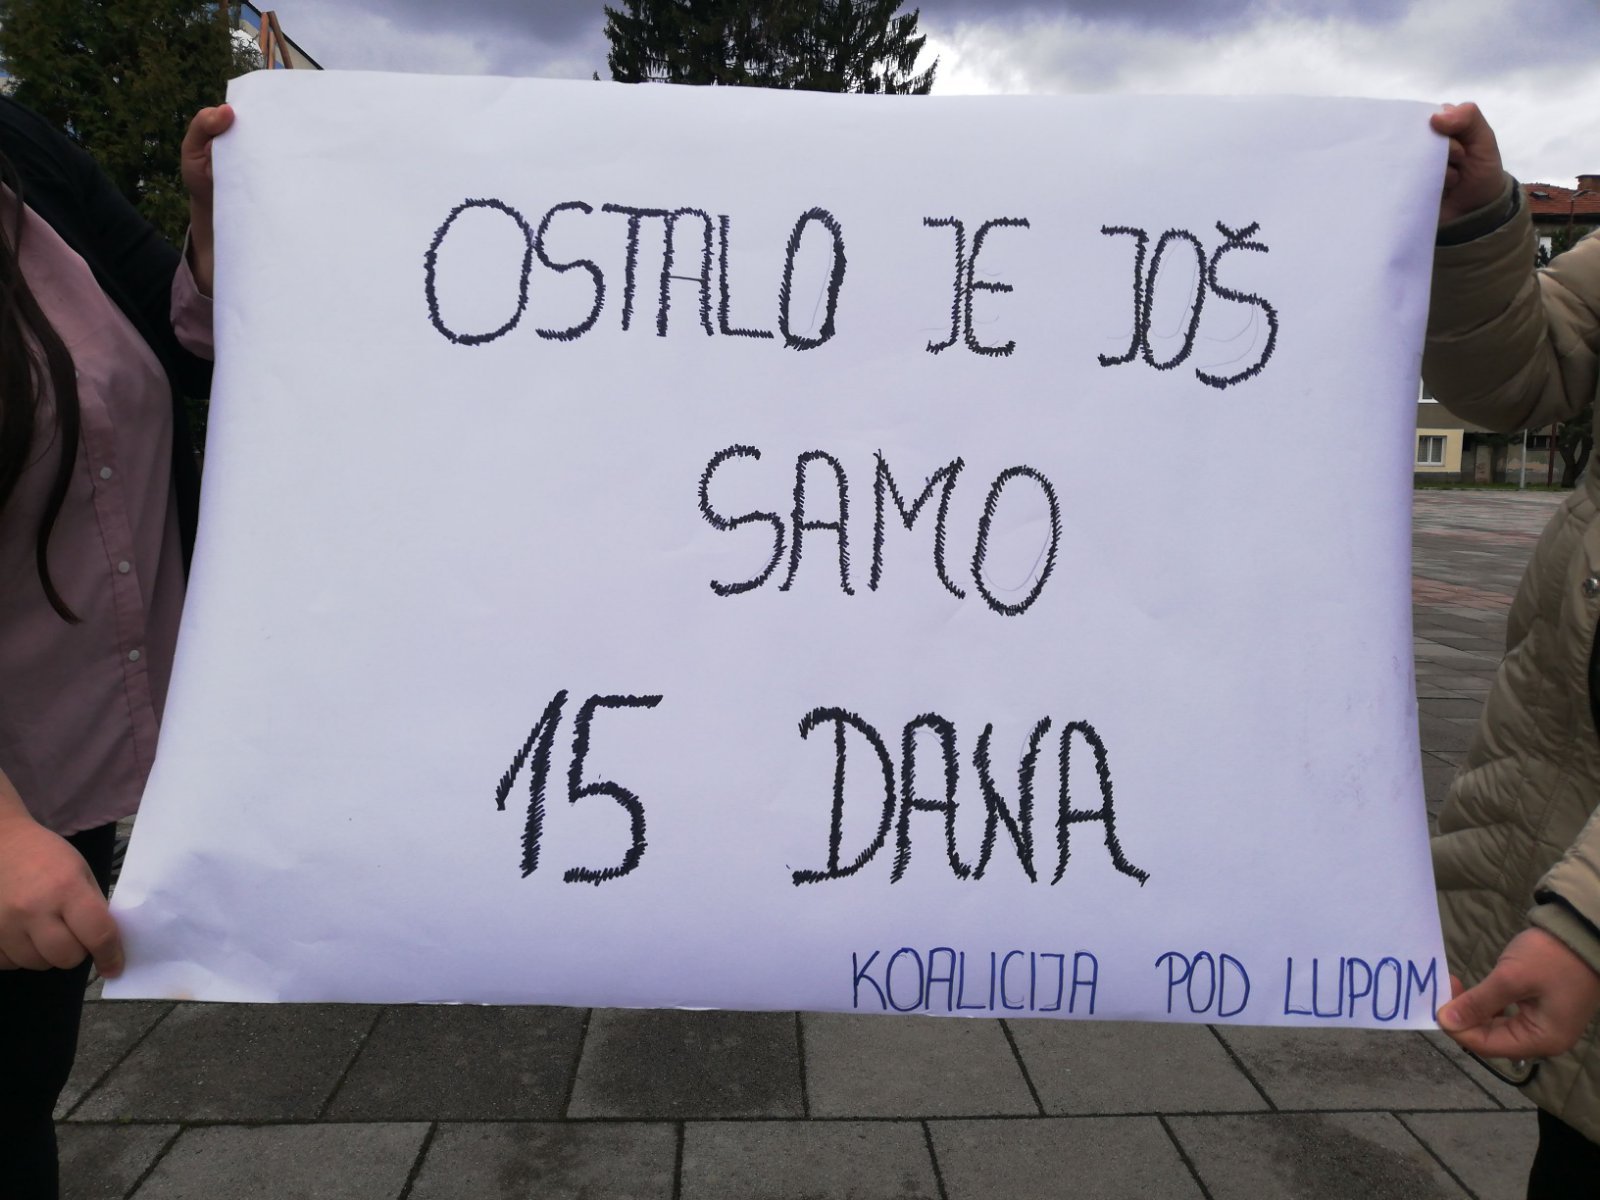 OSTALO JE JOŠ
SAMO
15 DANA
KOALICIJA POD LUPOM